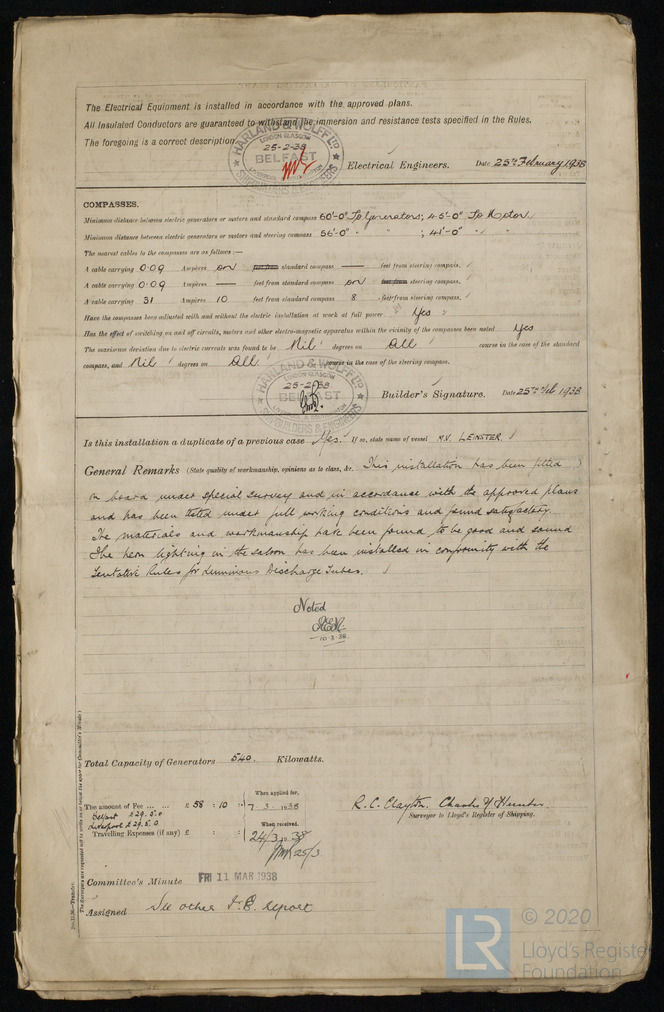 The Electrical Equipment is installed in accordance with the approved plans.
All Insulated Conductors are guaranteed to withstand the immersion and resistance tests specified in the Rules.
The foregoing is a correct description.
HARLAND & WOLFF LTD
LONDON GLASGOW
25-2-38
BELFAST
SHIPBUILDERS & ENGINEERS
Electrical Engineers. Date 25th February 1938
COMPASSES.
Minimum distance between electric generators or motors and standard compass 60'-0" To Generators; 45'-0" To Motor
Minimum distance between electric generators or motors and steering compass 56'-0" " " ; 41'-0" " "
The nearest cables to the compasses are as follows:—
A cable carrying 0.09 Ampères on feet from standard compass — feet from steering compass.
A cable carrying 0.09 Ampères — feet from standard compass on feet from steering compass.
A cable carrying 31 Ampères 10 feet from standard compass 8 feet from steering compass.
Have the compasses been adjusted with and without the electric installation at work at full power Yes
Has the effect of switching on and off circuits, motors and other electro-magnetic apparatus within the vicinity of the compasses been noted Yes
The maximum deviation due to electric currents was found to be Nil degrees on All course in the case of the standard
compass, and Nil degrees on All course in the case of the steering compass.
HARLAND & WOLFF LTD
LONDON GLASGOW
25-2-38
BELFAST
SHIPBUILDERS & ENGINEERS
Builder's Signature. Date 25th Feb 1938
Is this installation a duplicate of a previous case Yes. If so, state name of vessel M.V. LEINSTER.
General Remarks (State quality of workmanship, opinions as to class, &c. This installation has been fitted
on board under special survey and in accordance with the approved plans
and has been tested under full working conditions and found satisfactory.
The materials and workmanship have been found to be good and sound
The neon lighting in the saloon has been installed in conformity with the
Tentative Rules for Luminous Discharge Tubes.
Noted
10-3-38.
Total Capacity of Generators 540. Kilowatts.
The amount of Fee ... ... £ 58 : 10 :
When applied for,
7 3 1938
Belfast £29.5.0
Liverpool £29.5.0
Travelling Expenses (if any) £ : :
When received.
24/3 1938
25/3
R.C. Clayton. Charles N Hunter
Surveyor to Lloyd's Register of Shipping.
Committee's Minute FRI 11 MAR 1938
Assigned See other F.E. report
The Surveyors are requested not to write on or below the space for Committee's Minute.)
LR
© 2020
Lloyd's Register
Foundation